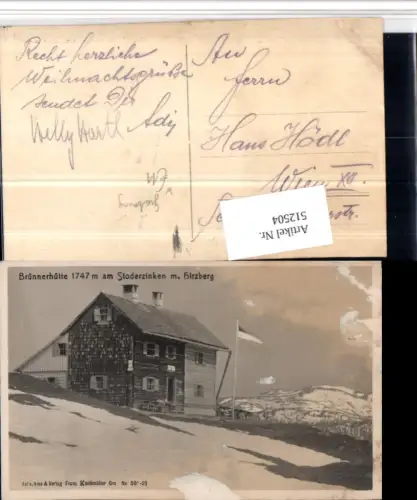 Recht herzliche
Weihnachtsgrüße
sendet Dir
Adij
Helly Hartl
An
Herrn
Hans Hödl
Wien XV.
Artikel Nr.
512504
Brünnerhütte 1747 m am Stoderzinken m. Hirzberg
& Verlag Franz